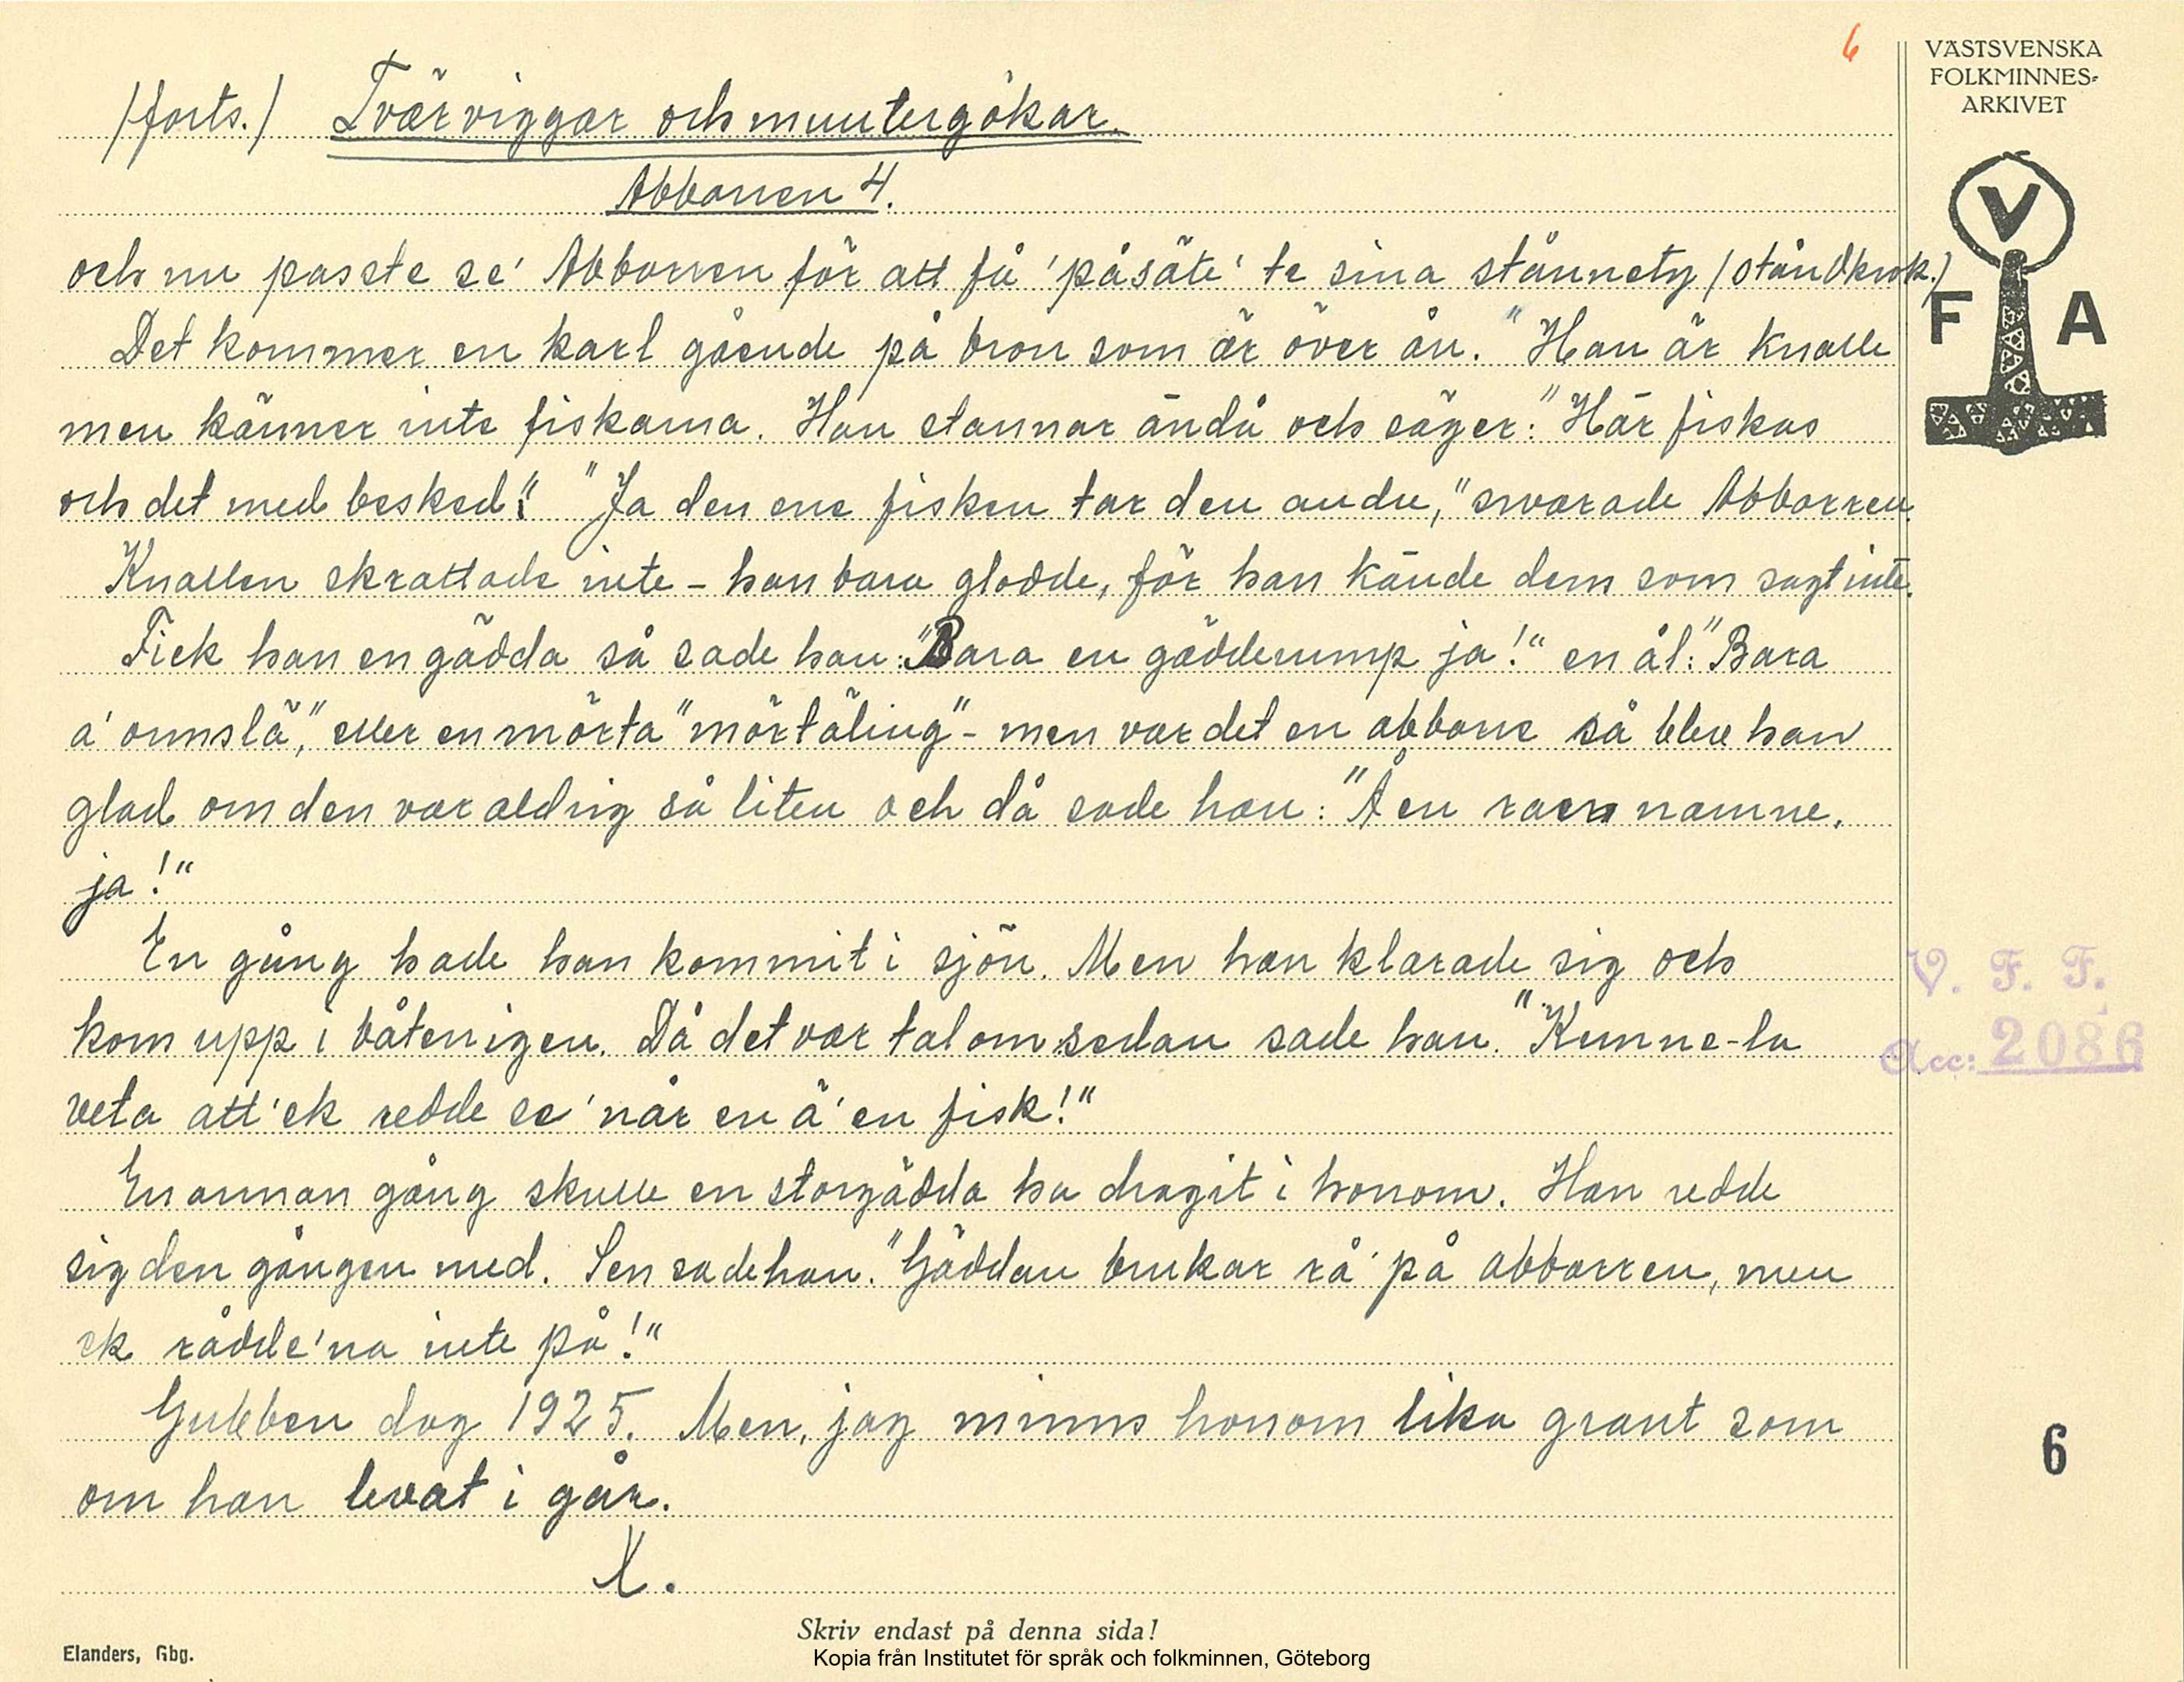 6
VÄSTSVENSKA
FOLKMINNES-
ARKIVET
V
F A
/forts./ Tvärviggar och muntergökar.
Abborren 4.
och nu passte se' Abborren för att få 'påsäte' te sina stånnety /ståndkrok./
Det kommer en karl gående på bron som är över ån. "Han är knalle
men känner inte fiskarna. Han stannar ändå och säger: "Här fiskas
och det med besked!" "Ja den ene fisken tar den andre," svarade Abborren.
Knallen skrattade inte - han bara glodde, för han kände dem som sagt inte.
Fick han en gädda så sade han: "Bara en gädderump ja!" en ål: "Bara
a' ormslä," eller en mörta "mörtäling" - men var det en abborre så blev han
glad om den var aldrig så liten och då sade han: "Å en namne,
ja!"
En gång hade han kommit i sjön. Men han klarade sig och
kom upp i båten igen. Då det var tal om sedan sade han. "Kunne-la
veta att 'ek redde se' når en ä' en fisk!"
En annan gång skulle en storgädda ha dragit i honom. Han redde
sig den gången med. Sen sade han. "Gäddan brukar rå' på abborren, men
ek rådde'na inte på!"
Gubben dog 1925. Men, jag minns honom lika grant som
om han levat i går.
X.
V. F. F.
Acc: 2086
6
Skriv endast på denna sida!
Elanders, Gbg.
Kopia från Institutet för språk och folkminnen, Göteborg